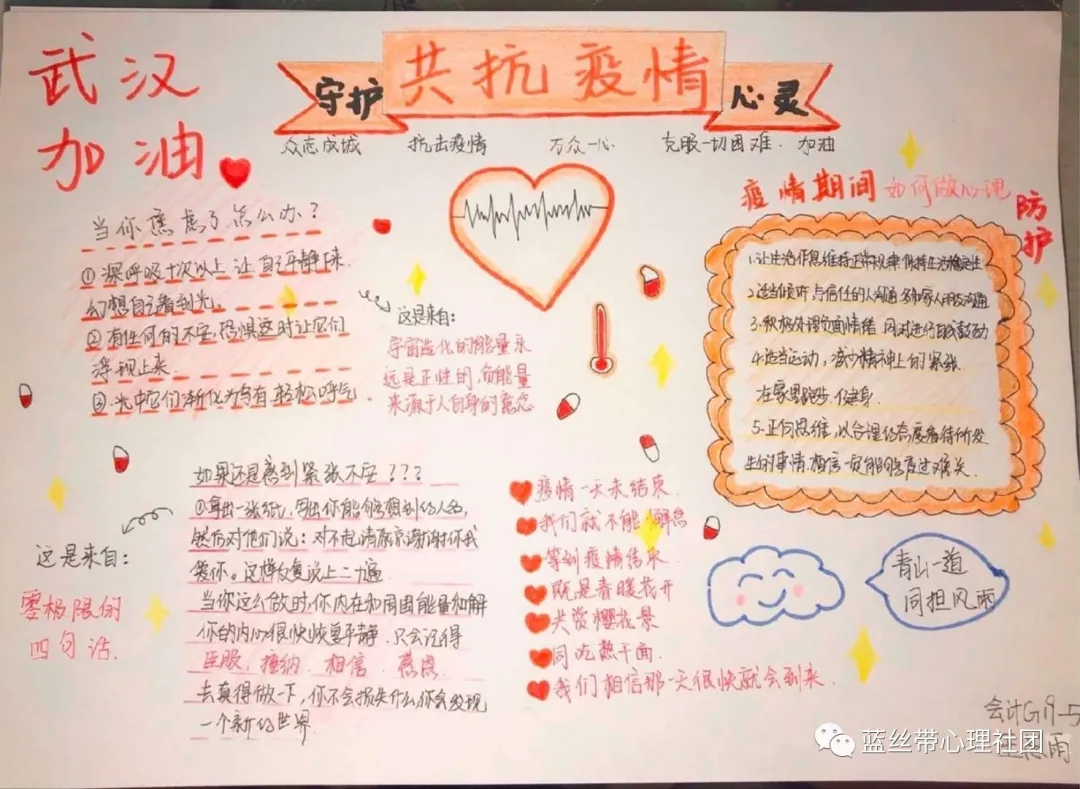 武汉
加油
守护 共抗疫情 心灵
众志成城 抗击疫情 万众一心 克服一切困难. 加油
当你焦虑了怎么办？
①深呼吸十次以上 让自己平静下来.
幻想自己看到光.
②有任何的不安,恐惧这时让它们
浮现上来.
③光中它们渐化为乌有 轻松呼气.
这是来自：
宇宙造化的能量永
远是正性的,负能量
来源于人自身的意念
疫情期间 如何做心理
防护
1.让生活作息维持正常规律 保持生活稳定性
2.适当倾诉 与信任的人沟通 多和家人朋友沟通
3.积极处理负面情绪 同时进行自我鼓励
4.适当运动，减少精神上的紧张.
在家里跑步.健身.
5.正向思维，以合理的态度看待所发
生的事情 相信一定能够度过难关.
如果还是感到紧张不安？？？
①拿出一张纸,写出你能够想到的人名,
然后对他们说：对不起请原谅谢谢你我
爱你。这样反复说上二十遍.
当你这么做时,你内在和周围能量和解
你的内心很快恢复平静.只会记得
臣服、接纳.相信.感恩.
去真得做一下,你不会损失什么,你会发现
一个新的世界.
这是来自：
零极限的
四句话.
疫情一天未结束.
我们就不能懈怠
等到疫情结束.
既是春暖花开
共赏樱花景
同吃热干面.
我们相信那一天很快就会到来.
青山一道
同担风雨
会计G19-5
雨
蓝丝带心理社团